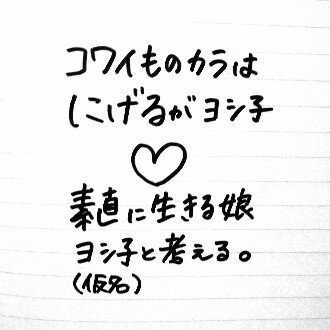 コワイものカラは
にげるがヨシ子
♡
素直に生きる娘
ヨシ子と考える。
(仮名)